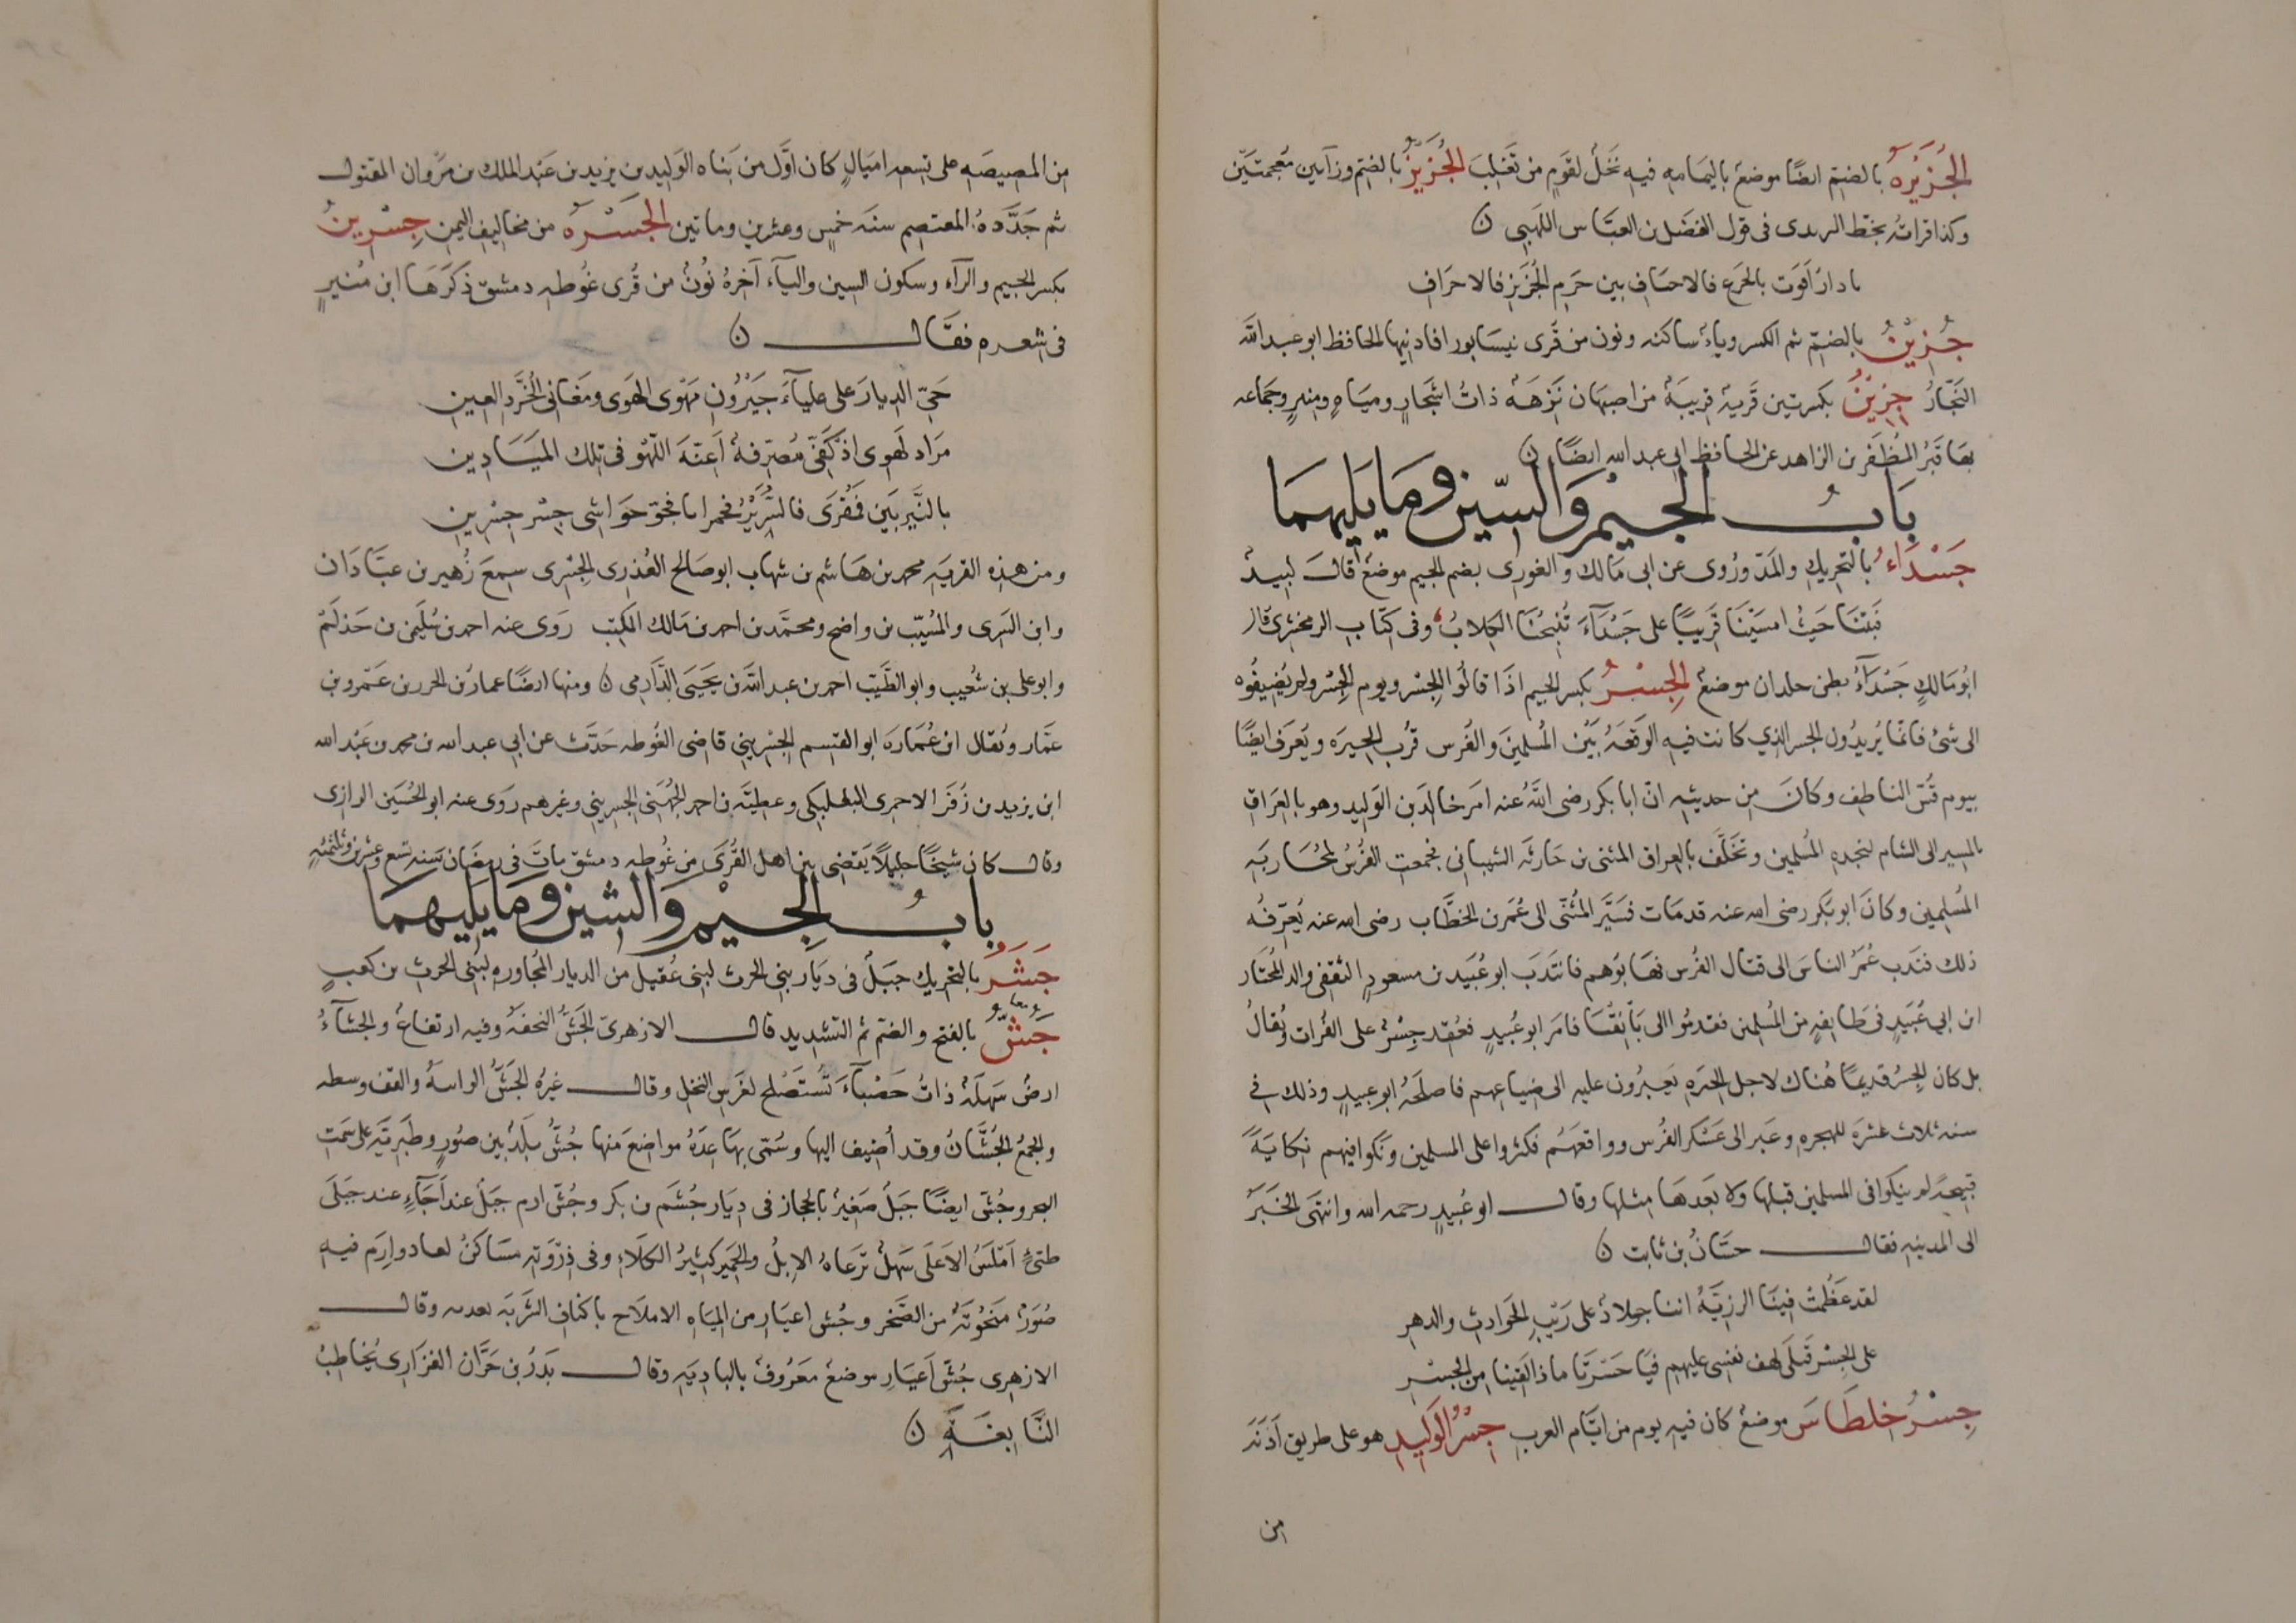 الجُزَيْرَه بالضم ايضًا موضع باليمامه فيه نخل لقوم من تغلب الجُزَيْزُ بالضم وزآيين معجمتين
وكذا قراته بخط اليزيدى فى قول الفضل بن العباس اللهبى ن
يا دار اقوت بالجزع فالاخياف بين حزم الجُزَيز فالاجراف
جُزِيْنُ بالضم ثم الكسر وياء ساكنه ونون من قرى نيسابور افادنيها الحافظ ابو عبد الله
النجار جِزِيْنُ بكسرتين قرية قريبة من اصبهان نزهة ذات اشجار ومياه ومنبر وجماعه
بها قبر المظفر بن الزاهد عن الحافظ ابى عبد الله ايضًا ن
بابُ الجيم والسين وما يليهما
جَسَدَاءُ بالتحريك والمد وروى عن ابى مالك والغورى بضم الجيم موضع قال لبيد
فبتنا حيث امسينا قريبًا على جسدآء تنبحنا الكلاب وفى كتاب الزمخشرى قال
ابو مالك جسدآء ببطن جلدان موضع الجِسْرُ بكسر الجيم اذا قالوا الجسر ويوم الجسر ولم يضيفوه
الى شئ فانما يريدون الجسر الذي كانت فيه الوقعة بين المسلمين والفرس قرب الحيره ويعرف ايضًا
بيوم قس الناطف وكان من حديثه ان ابا بكر رضى الله عنه امر خالد بن الوليد وهو بالعراق
بالمسير الى الشام لنجده المسلمين وتخلف بالعراق المثنى بن حارثه الشيبانى فجمعت الفرس لمحاربه
المسلمين وكان ابو بكر رضى الله عنه قد مات فسير المثنى الى عمر بن الخطاب رضى الله عنه يعرفه
ذلك فندب عمر الناس الى قتال الفرس فهابوهم فانتدب ابو عبيد بن مسعود الثقفى والد المختار
ابن ابي عبيد فى طايفه من المسلمين فقدموا الى بانقيا فامر ابو عبيد فعقد جسر على الفرات ويقال
بل كان الجسر قديمًا هناك لاهل الحيره يعبرون عليه الى ضياعهم فاصلحه ابو عبيد وذلك في
سنه ثلاث عشره للهجره وعبر الى عسكر الفرس وواقعهم فكثروا على المسلمين ونكوا فيهم نكاية
قبيحة لم ينكوا فى المسلمين قبلها ولا بعدها مثلها وقال ابو عبيد رحمه الله وانتهى الخبر
الى المدينه فقال حسان بن ثابت ن
لقد عظمت فينا الرزية اننا جلاد على ريب الحوادث والدهر
على الجسر قتلى لهف نفسى عليهم فيا حسرتا ماذا لقينا من الجسر
جِسْرُ خلطاسَ موضع كان فيه يوم من ايام العرب جِسْرُ الوَليدِ هو على طريق اَذَنَه
من
من المصيصه على تسعه اميال كان اول من بناه الوليد بن يزيد بن عبد الملك بن مروان المقتول
ثم جدده المعتصم سنه خمس وعشرين وماتين الجَسَرَه من مخاليف اليمن جِسْرينُ
بكسر الجيم والرآء وسكون السين واليآء آخره نون من قرى غوطه دمشق ذكرها ابن منير
فى شعره فقال ن
حى الديار على علياء جيرون مهوى الهوى ومغانى الخرد العين
مراد لهوى اذ كفى مصرفة اعنة اللهو فى تلك الميادين
بالنيربين فمقرى فالسرير فخمرايا فجو حواشى جسر جسرين
ومن هذه القريه محمد بن هاشم بن شهاب ابو صالح العذرى الجسرى سمع زهير بن عبادان
وابن السرى والمسيب بن واضح ومحمد بن احمد بن مالك المكتب روى عنه احمد بن سليمن بن حذلم
وابو على بن شعيب وابو الطيب احمد بن عبد الله بن يحيى الدارمى ن ومنها ايضًا عمار بن الحرر بن عمرو بن
عمار ويقال ابن عماره ابو القسم الجسريني قاضى الغوطه حدث عن ابي عبد الله بن محمد بن عبد الله
ابن يزيد بن زفر الاحمرى البعلبكى وعطيه بن احمد الجهنى الجسريني وغيرهم روى عنه ابو الحسين الرازى
وقال كان شيخًا جليلًا يقضى بين اهل القرى من غوطه دمشق مات فى رمضان سنه تسع وعشرين وثلثمئه
بابُ الجِيْم والشين وما يليهما
جَشَرُ بالتحريك جبل فى ديار بني الحرث لبنى عقيل من الديار المجاوره لبنى الحرث بن كعب
جَشّ معا بالفتح والضم ثم التشديد قال الازهرى الجش النجفه وفيه ارتفاع والجشآء
ارض سهلة ذات حصبآء تستصلح لغرس النخل وقال غيره الجش الرابيه والقف وسطه
والجمع الجشان وقد أضيف اليها وسمى بها عدة مواضع منها جش بلد بين صور وطبريه على سمت
البحر وجش ايضًا جبل صغير بالحجاز فى ديار جشم بن بكر وجش ارم جبل عند اجآء عند جبلى
طئ املس الاعلى سهل ترعاه الابل والحمير كثير الكلاء وفى ذروته مساكن لعاد وارم فيه
صور منحوتة من الصخر وجش اعيار من المياه الاملاح باكناف الشربه بعدنه وقال
الازهرى جش اعيار موضع معروف بالباديه وقال بدر بن حزان الفزارى يخاطب
النابغه ن